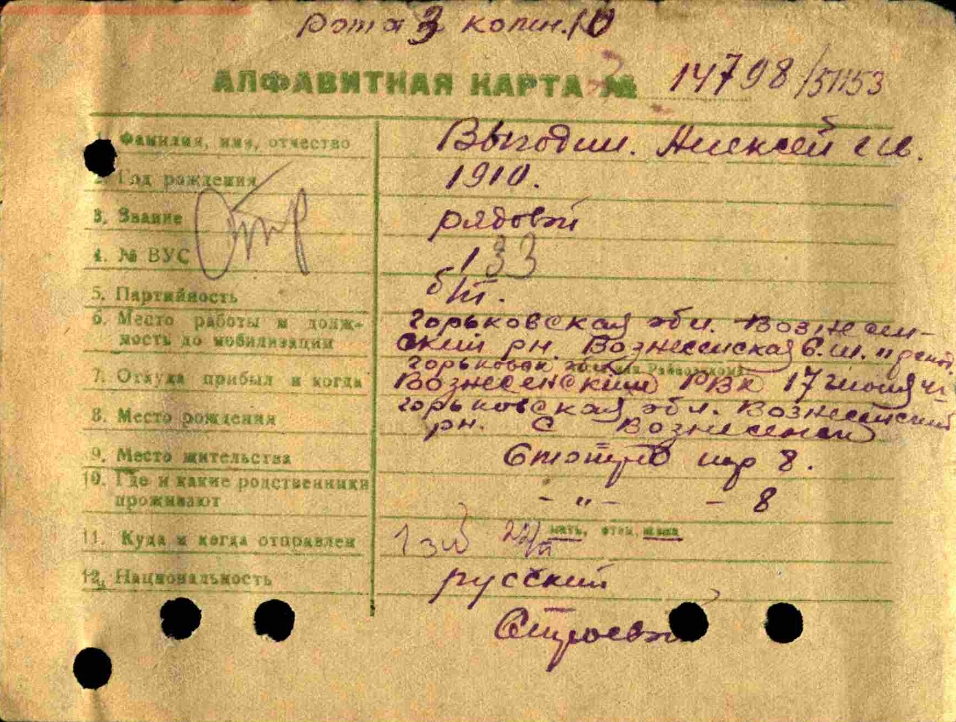 Рота 3 копи. 10
АЛФАВИТНАЯ КАРТА № 14798/51153
1. Фамилия, имя, отчество Выгодин. Алексей
2. Год рождения 1910.
3. Звание рядовой
Отпр
4. № ВУС 133
5. Партийность б/п.
6. Место работы и долж- горьковская обл. Вознесен-
ность до мобилизации ский рн. Вознесенская
горьковск
7. Откуда прибыл и когда Вознесенским РВК 17 июля 41
8. Место рождения горьковская обл. Вознесенский
рн. с Вознесенск
9. Место жительства 8.
10. Где и какие родственники - " - - 8
проживают
мать, отец, жена
11. Куда и когда отправлен 1 зсп
12. Национальность русский
Строевой